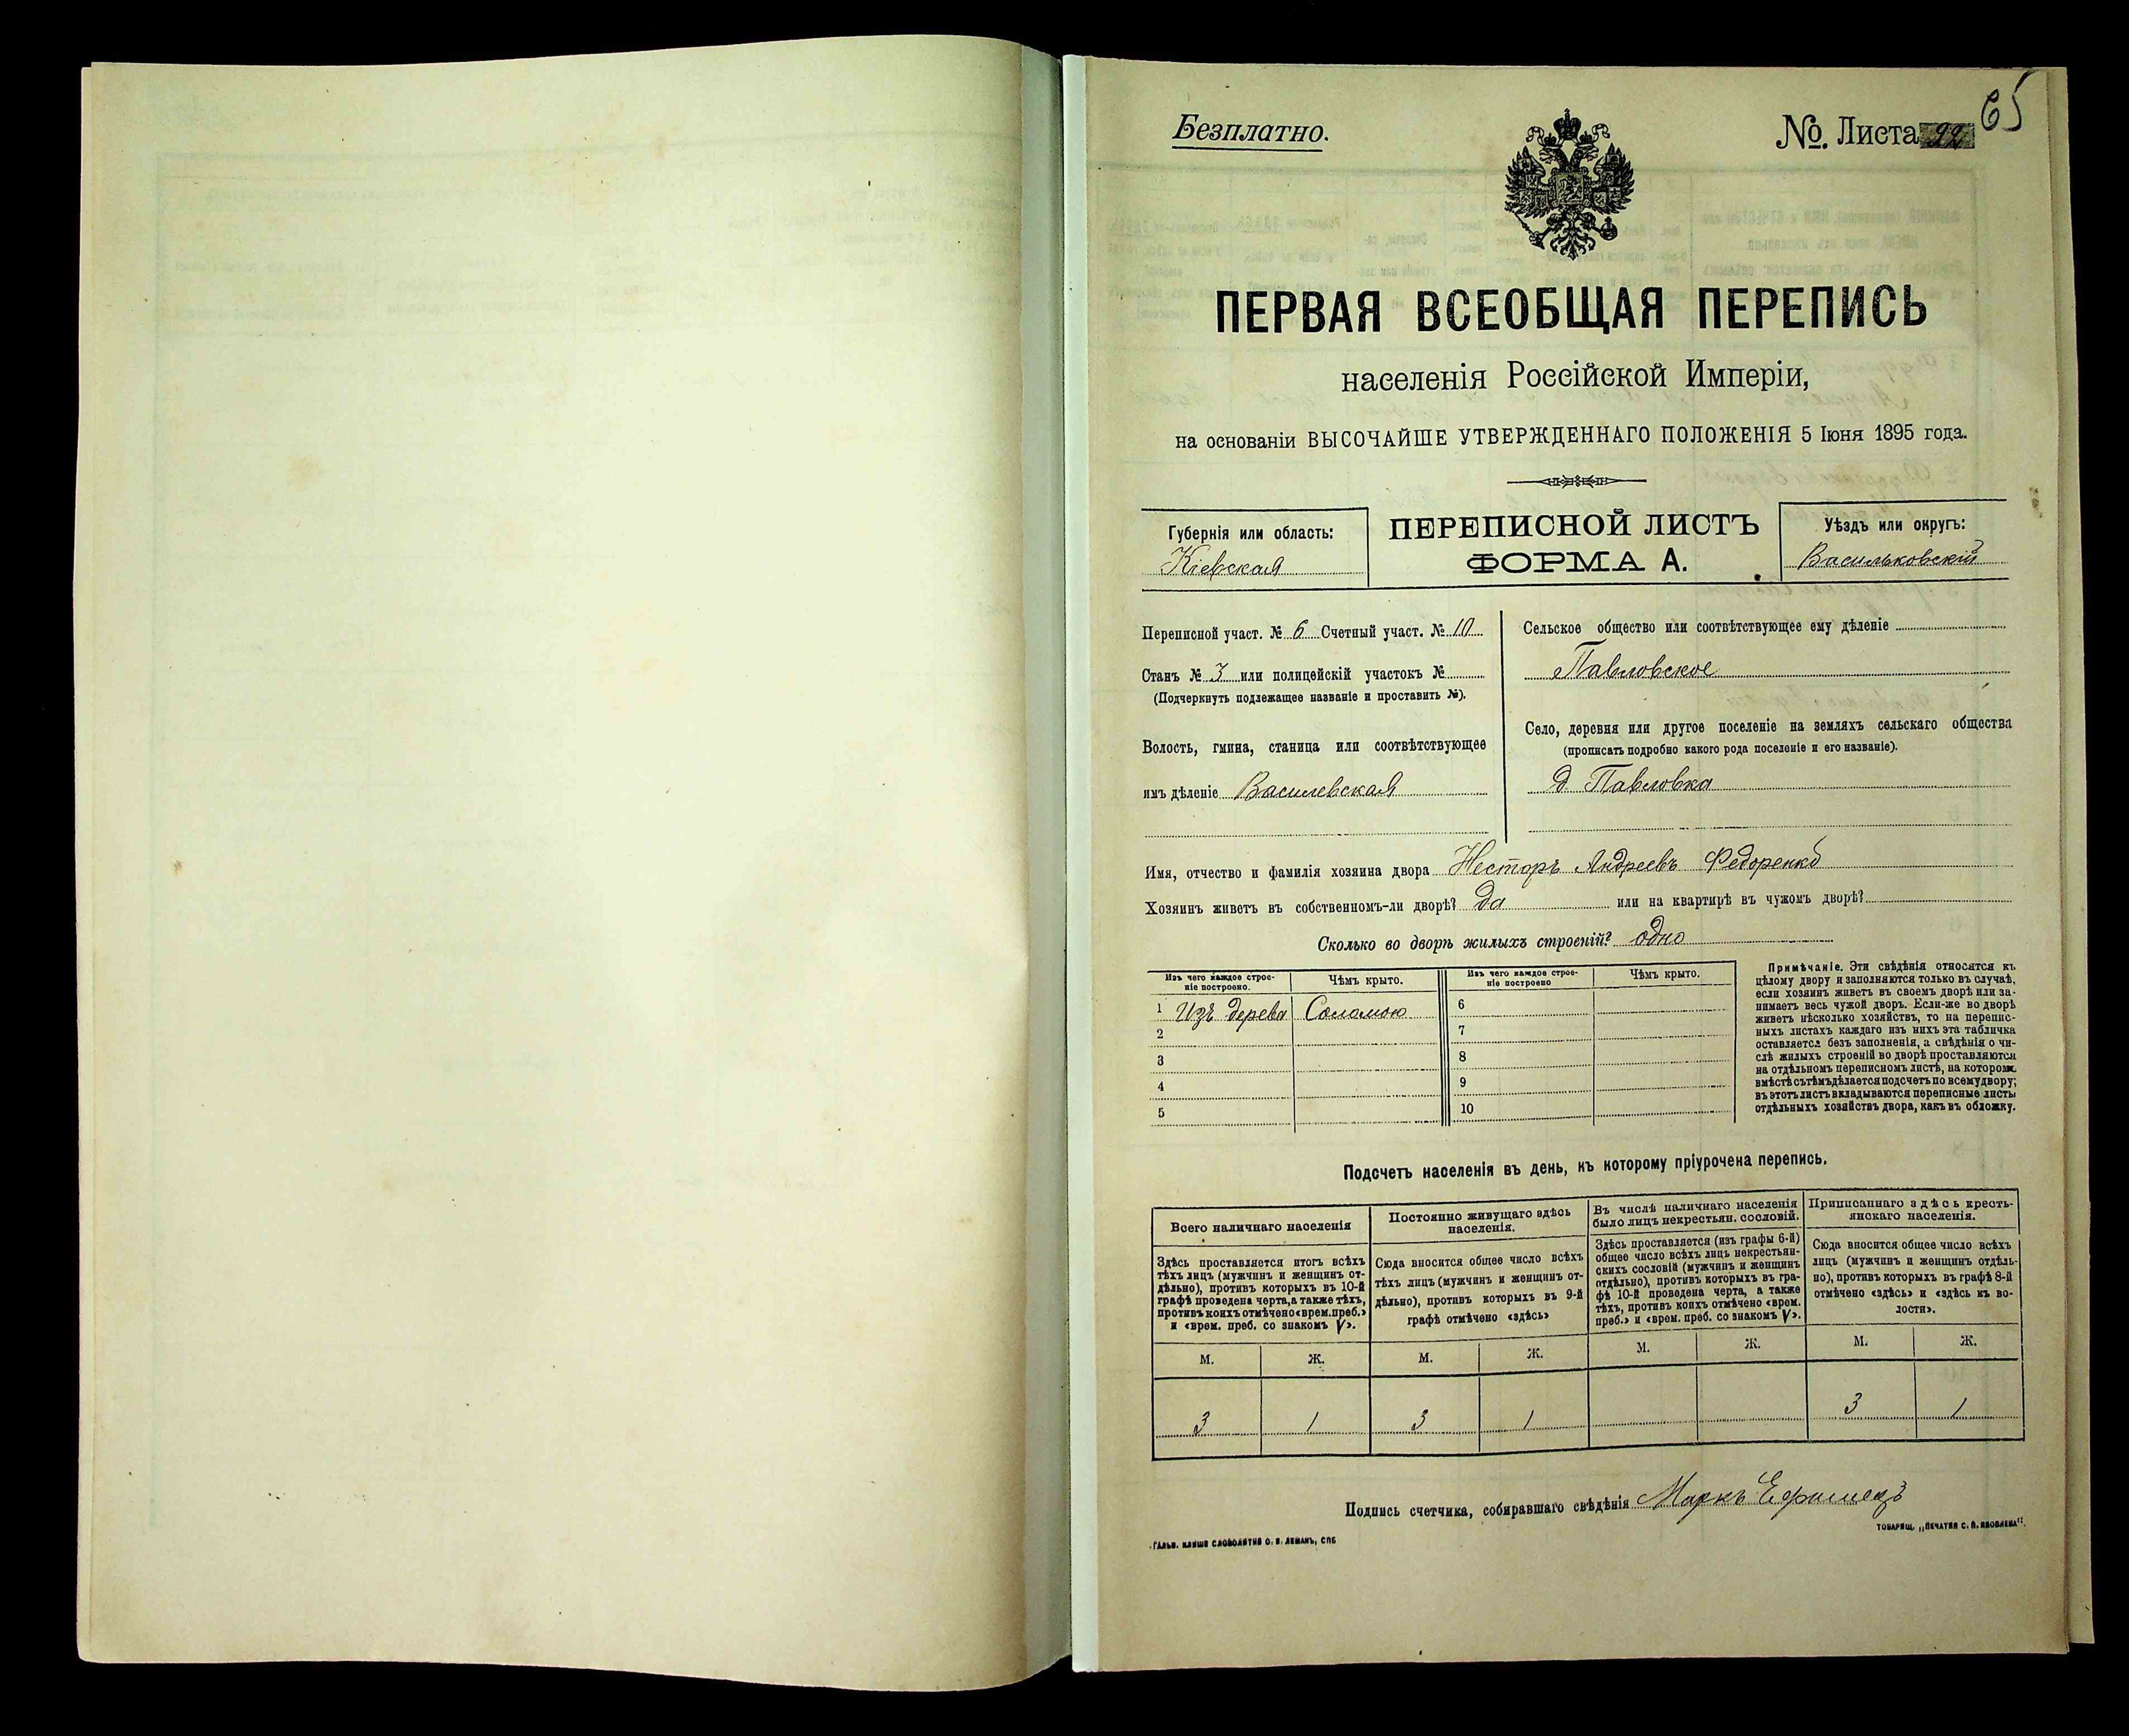 65
Безплатно.
№ Листа 92
ПЕРВАЯ ВСЕОБЩАЯ ПЕРЕПИСЬ
населенія Россійской Имперіи,
на основаніи ВЫСОЧАЙШЕ УТВЕРЖДЕННАГО ПОЛОЖЕНІЯ 5 Іюня 1895 года.
Губернія или область:
Кіевская
ПЕРЕПИСНОЙ ЛИСТЪ
ФОРМА А.
Уѣздъ или округъ:
Васильковскій
Переписной участ. № 6 Счетный участ. № 10
Станъ № 3 или полицейскій участокъ №
(Подчеркнуть подлежащее названіе и проставить №).
Волость, гмина, станица или соотвѣтствующее
имъ дѣленіе Василевская
Сельское общество или соотвѣтствующее ему дѣленіе
Павловское
Село, деревня или другое поселеніе на земляхъ сельскаго общества
(прописать подробно какого рода поселеніе и его названіе).
д. Павловка
Имя, отчество и фамилія хозяина двора Несторъ Андреевъ Федоренко
Хозяинъ живетъ въ собственномъ-ли дворѣ? да или на квартирѣ въ чужомъ дворѣ?
Сколько во дворѣ жилыхъ строеній? одно
Изъ чего каждое строе-
ніе построено.
Чѣмъ крыто.
Изъ чего каждое строе-
ніе построено
Чѣмъ крыто.
1 Изъ дерева Соломою 6
2 7
3 8
4 9
5 10
Примѣчаніе. Эти свѣдѣнія относятся къ
цѣлому двору и заполняются только въ случаѣ,
если хозяинъ живетъ въ своемъ дворѣ или за-
нимаетъ весь чужой дворъ. Если-же во дворѣ
живетъ нѣсколько хозяйствъ, то на перепис-
ныхъ листахъ каждаго изъ нихъ эта табличка
оставляется безъ заполненія, а свѣдѣнія о чи-
слѣ жилыхъ строеній во дворѣ проставляются
на отдѣльномъ переписномъ листѣ, на которомъ
вмѣстѣ съ тѣмъ дѣлается подсчетъ по всему двору;
въ этотъ листъ вкладываются переписные листы
отдѣльныхъ хозяйствъ двора, какъ въ обложку.
Подсчетъ населенія въ день, къ которому пріурочена перепись.
Всего наличнаго населенія
Здѣсь проставляется итогъ всѣхъ
тѣхъ лицъ (мужчинъ и женщинъ от-
дѣльно), противъ которыхъ въ 10-й
графѣ проведена черта, а также тѣхъ,
противъ коихъ отмѣчено «врем. преб.»
и «врем. преб. со знакомъ V».
Постоянно живущаго здѣсь
населенія.
Сюда вносится общее число всѣхъ
тѣхъ лицъ (мужчинъ и женщинъ от-
дѣльно), противъ которыхъ въ 9-й
графѣ отмѣчено «здѣсь»
Въ числѣ наличнаго населенія
было лицъ некрестьян. сословій.
Здѣсь проставляется (изъ графы 6-й)
общее число всѣхъ лицъ некрестьян-
скихъ сословій (мужчинъ и женщинъ
отдѣльно), противъ которыхъ въ гра-
фѣ 10-й проведена черта, а также
тѣхъ, противъ коихъ отмѣчено «врем.
преб.» и «врем. преб. со знакомъ V».
Приписаннаго здѣсь кресть-
янскаго населенія.
Сюда вносится общее число всѣхъ
лицъ (мужчинъ и женщинъ отдѣль-
но), противъ которыхъ въ графѣ 8-й
отмѣчено «здѣсь» и «здѣсь къ во-
лости».
М. Ж. М. Ж. М. Ж. М. Ж.
3 1 3 1 3 1
Подпись счетчика, собиравшаго свѣдѣнія Маркъ
ГАЛЬВ. КЛИШЕ СЛОВОЛИТНИ О. И. ЛЕМАНЪ, СПБ
ТОВАРИЩ. „ПЕЧАТНЯ С. П. ЯКОВЛЕВА".